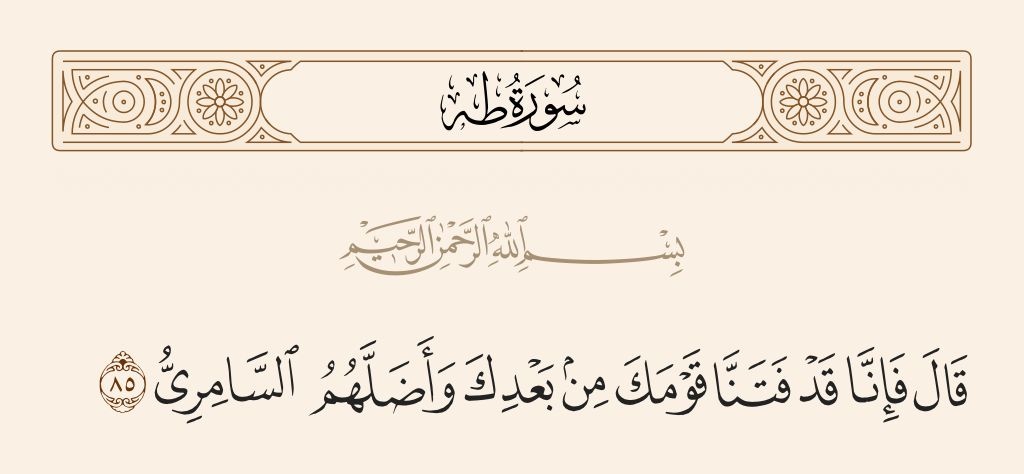 سُورَةُ طه
بِسْمِ ٱللَّهِ ٱلرَّحْمَٰنِ ٱلرَّحِيمِ
قَالَ فَإِنَّا قَدْ فَتَنَّا قَوْمَكَ مِنۢ بَعْدِكَ وَأَضَلَّهُمُ ٱلسَّامِرِىُّ ٨٥